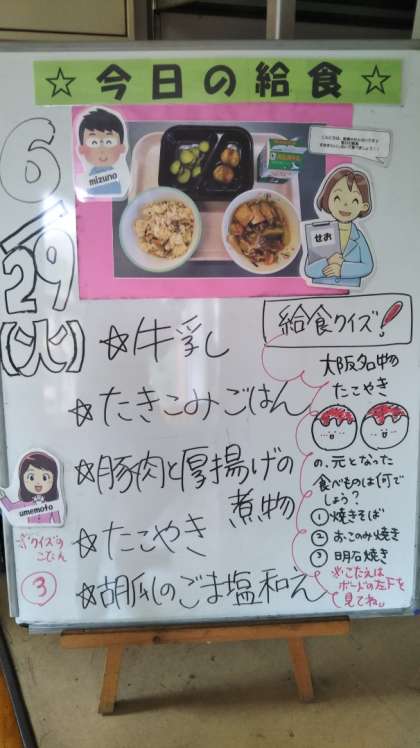 ☆今日の給食☆
6/29
(火)
mizuno
せお
☆牛乳
☆たきこみごはん
☆豚肉と厚揚げの
煮物
☆たこやき
☆胡瓜のごま塩和え
給食クイズ!
大阪名物の
たこやき
の、元となった
食べものは何で
しょう?
①焼きそば
②おこのみ焼き
③明石焼き
※こたえは
ボードの左下を
見てね。
umemoto
※クイズの
こたえ
③